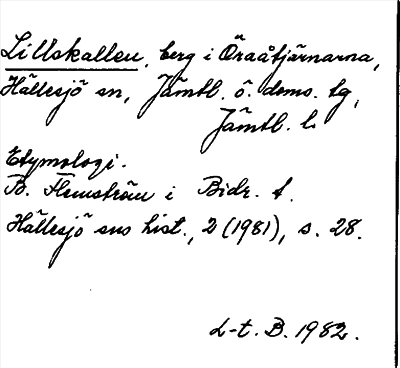 Lillskallen, berg i Öraåtjärnarna,
Hällesjö sn, Jämtl. ö. doms. tg,
Jämtl. l.
Etymologi.
B. Flemström i Bidr. t.
Hällesjö sns hist., 2 (1981), s. 28.
L-t. B. 1982.